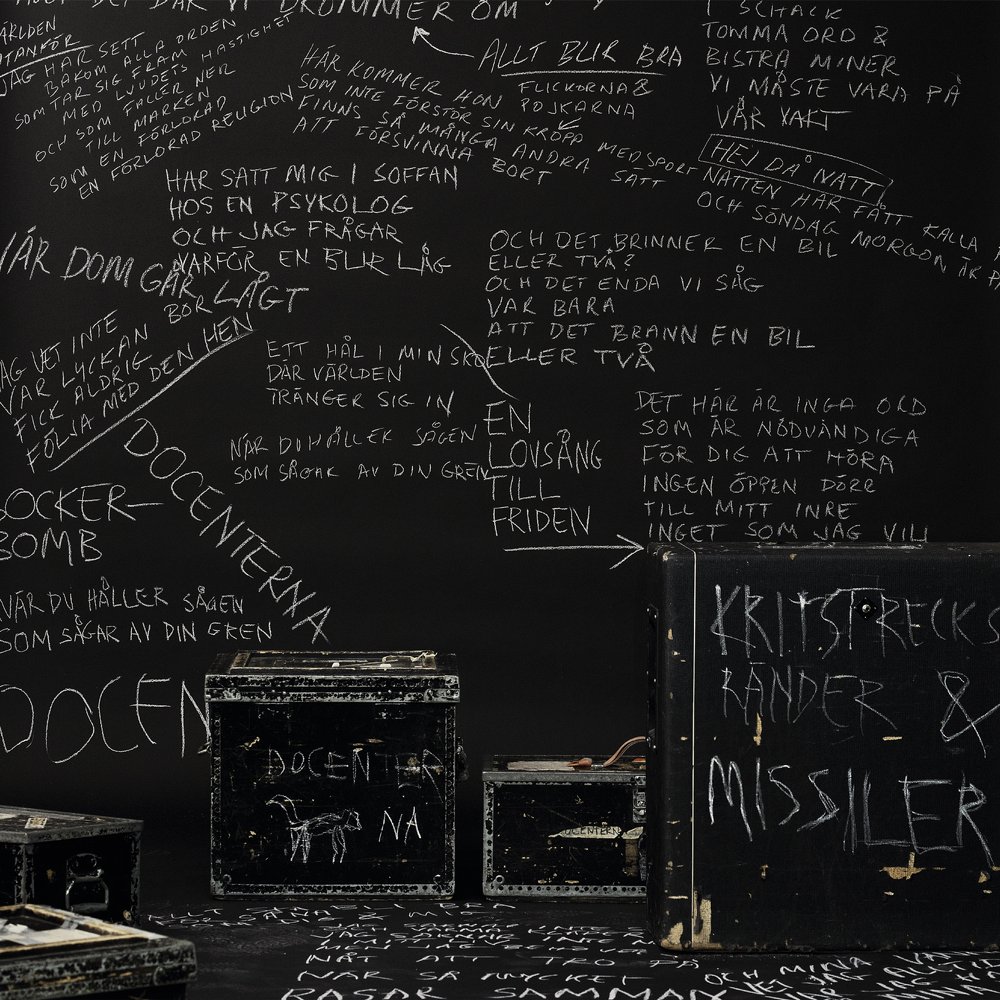 DET DÄR VI DRÖMMER OM
VÄRLDEN
UTANFÖR
JAG HAR SETT
BAKOM ALLA ORDEN
SOM TAR SIG FRAM
MED LJUDETS HASTIGHET
OCH SOM FALLER NER
TILL MARKEN
SOM EN FÖRLORAD
EN FÖRLORAD RELIGION
ALLT BLIR BRA
FLICKORNA &
POJKARNA
HÄR KOMMER HON
SOM INTE FÖRSTÖR SIN KROPP MED SPORT
FINNS SÅ MÅNGA ANDRA SÄTT
ATT FÖRSVINNA BORT
I SCHACK
TOMMA ORD &
BISTRA MINER
VI MÅSTE VARA PÅ
VÅR VAKT
HEJ DÅ NATT
NATTEN HAR FÅTT KALLA
OCH SÖNDAG MORGON ÄR
HAR SATT MIG I SOFFAN
HOS EN PSYKOLOG
OCH JAG FRÅGAR
VARFÖR EN BLIR LÅG
NÄR DOM GÅR LÅGT
OCH DET BRINNER EN BIL
ELLER TVÅ?
OCH DET ENDA VI SÅG
VAR BARA
ATT DET BRANN EN BIL
ELLER TVÅ
JAG VET INTE
VAR LYCKAN BOR
FICK ALDRIG
FÖLJA MED DEN HEM
ETT HÅL I MIN SKO
DÄR VÄRLDEN
TRÄNGER SIG IN
NÄR DU HÅLLER SÅGEN
SOM SÅGAR AV DIN GREN
EN
LOVSÅNG
TILL
FRIDEN
DET HÄR ÄR INGA ORD
SOM ÄR NÖDVÄNDIGA
FÖR DIG ATT HÖRA
INGEN ÖPPEN DÖRR
TILL MITT INRE
INGET SOM JAG VILL
DOCENTERNA
SOCKER-
BOMB
NÄR DU HÅLLER SÅGEN
SOM SÅGAR AV DIN GREN
DOCEN
DOCENTER
NA
DOCENTERN
KRITSTRECKS
RÄNDER &
MISSILER
ALLT
NÅT ATT TRO PÅ
NÄR SÅ MYCKET
RASAR SAMMAN
OCH MINA
VET JAG ALLTID